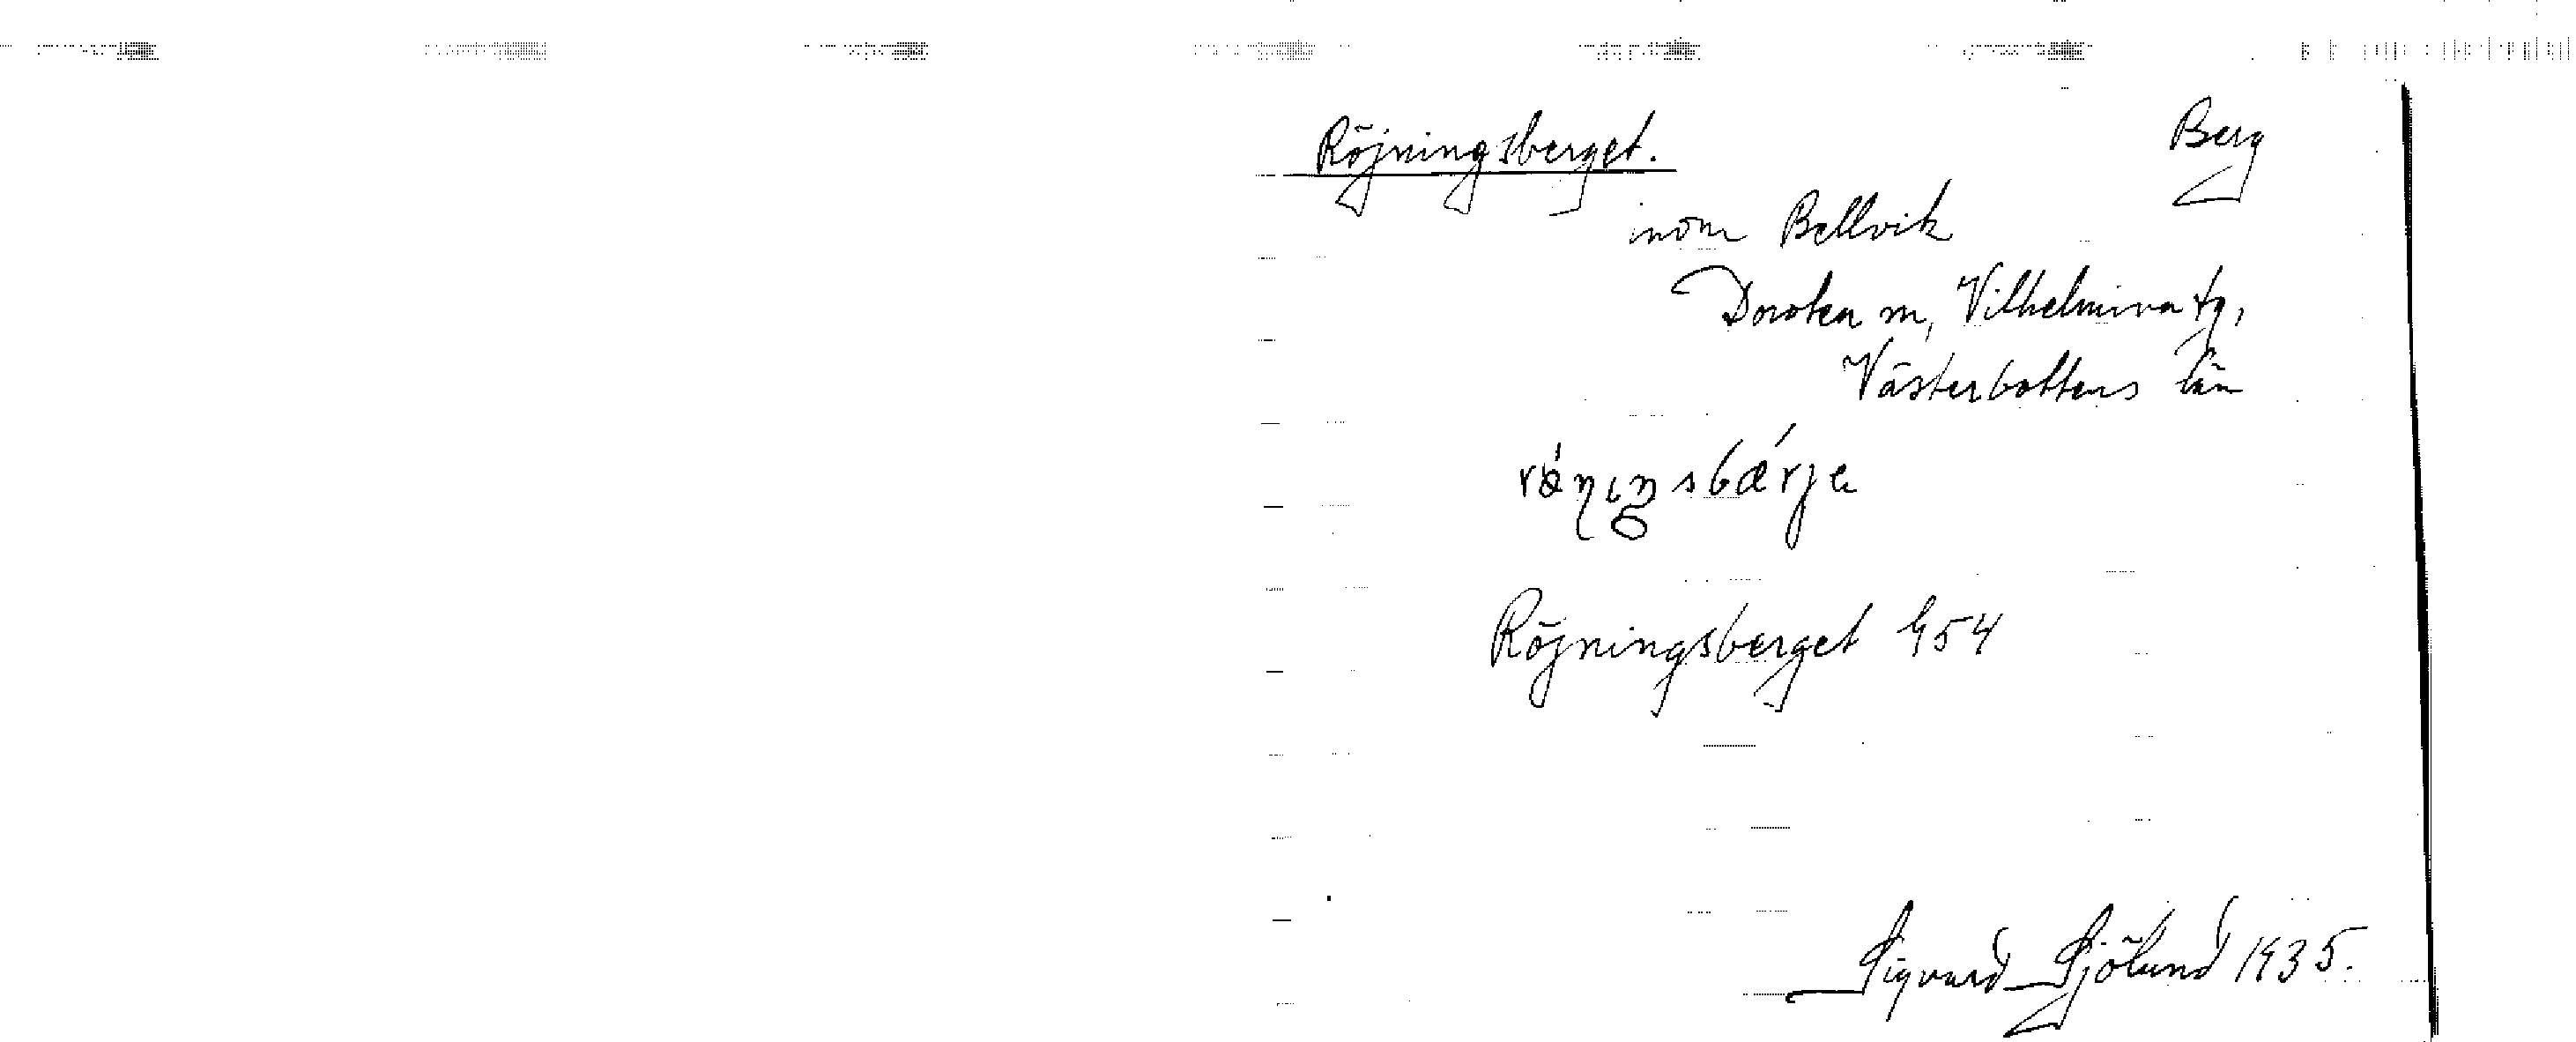 Röjningsberget. Berg
inom Bellvik
Dorotea m, Vilhelmina tg,
Västerbottens län
Röjningsberget 454
Sigvard Sjölund 1935.